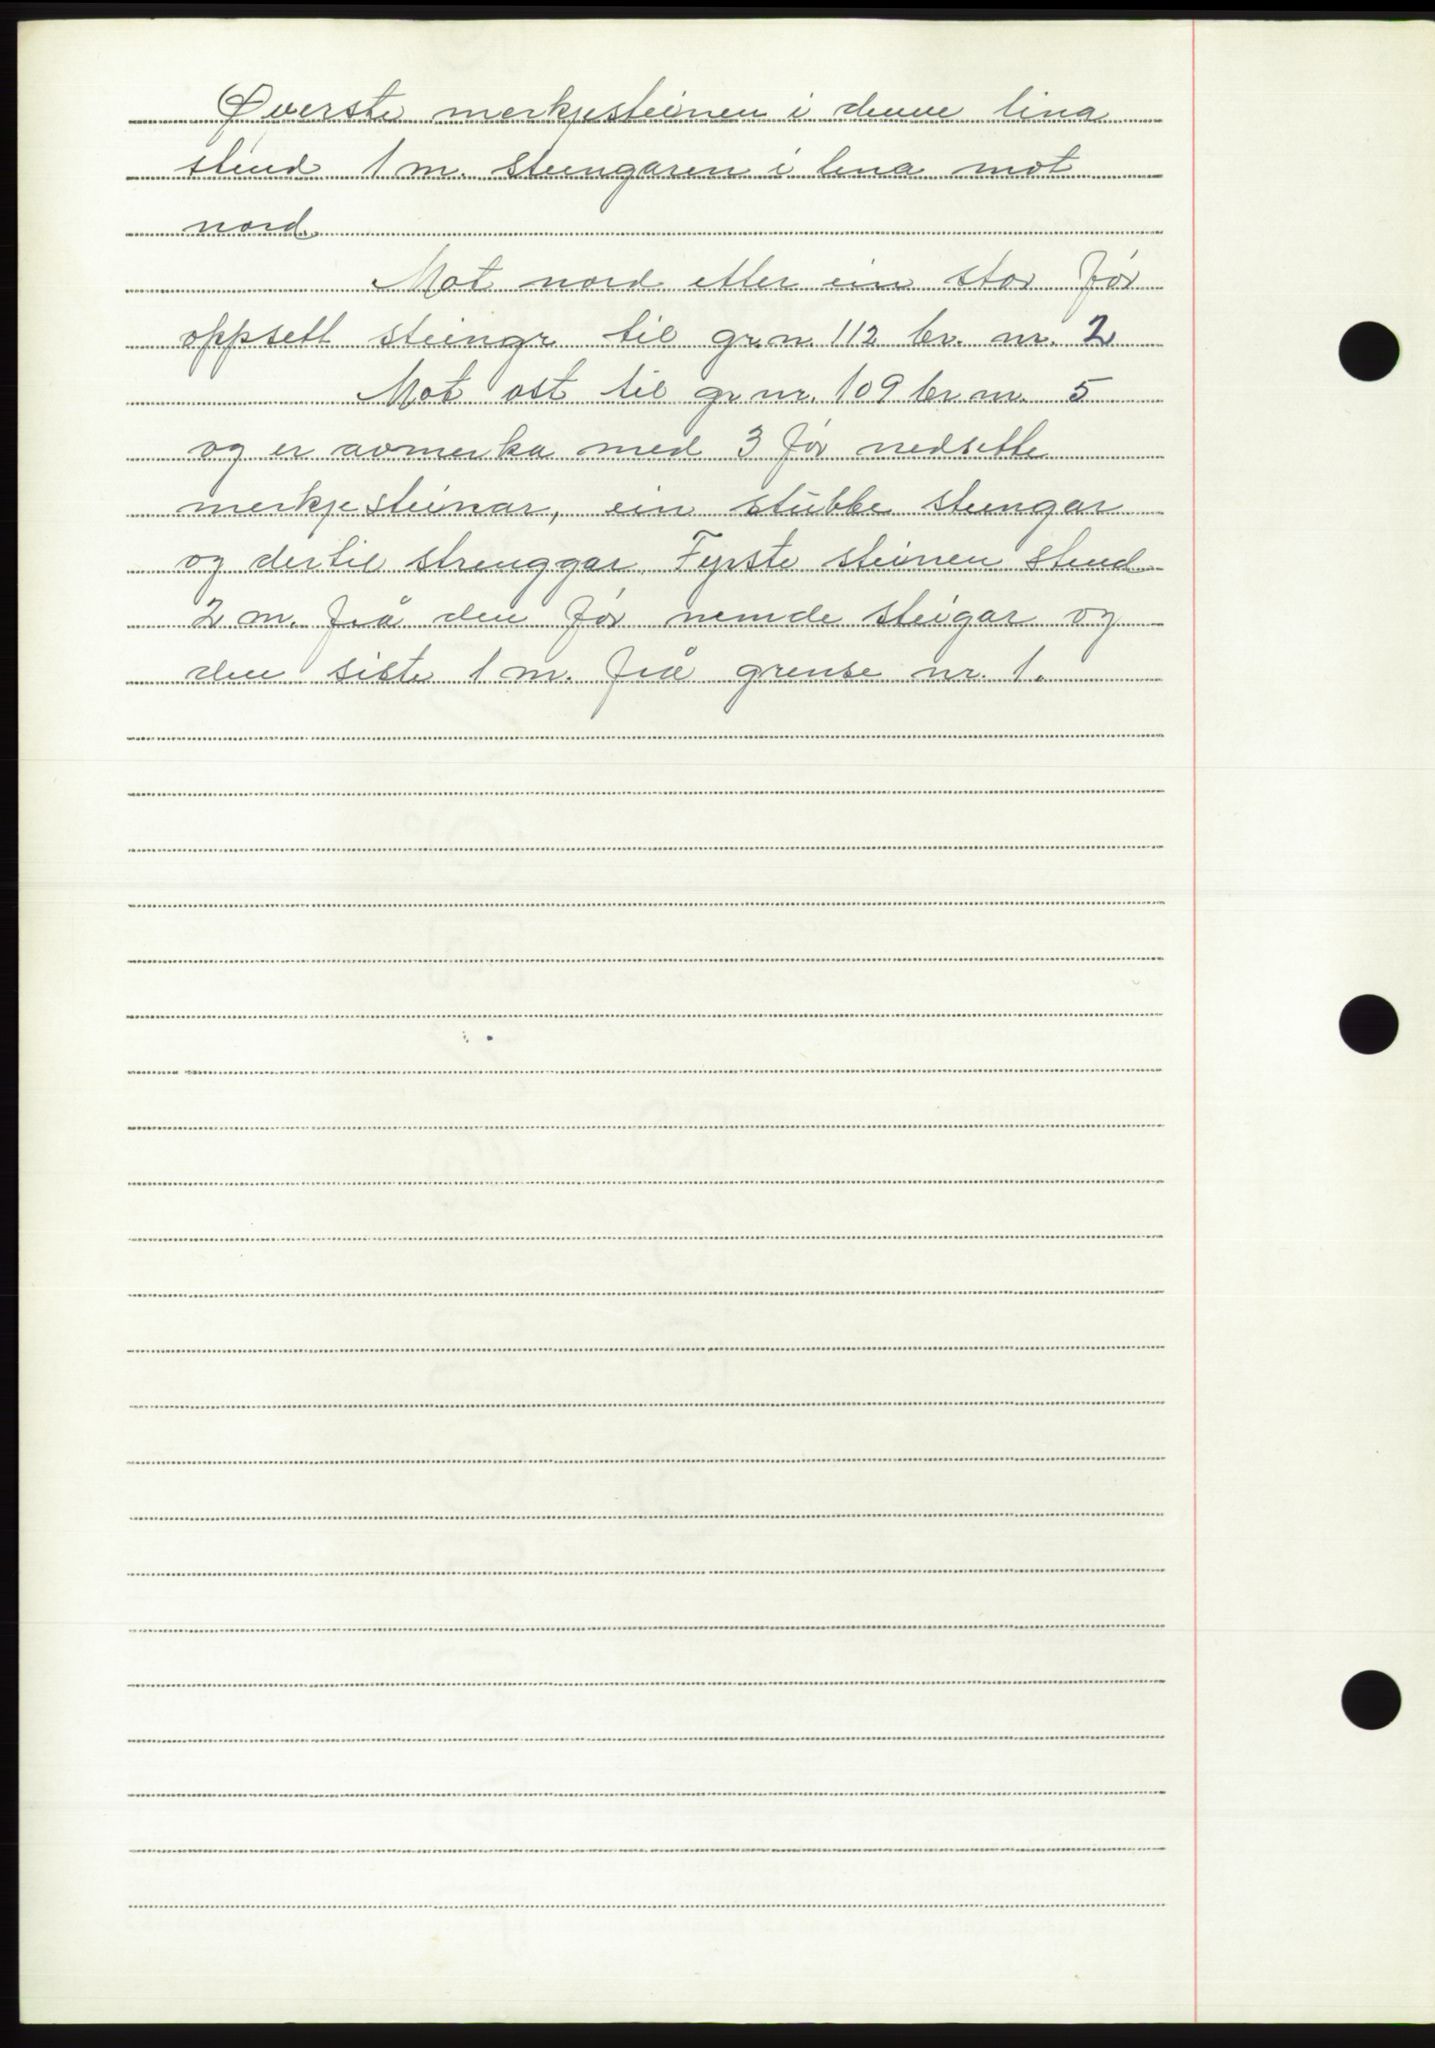 Øverste merkjesteinen i denne lina
stend 1 m. steingaren i lina mot
nord.
Mot nord etter ein stor før
oppsett steingr til gr.n. 112 br. nr. 2
Mot ost til gr nr. 109 br nr. 5
og er avmerka med 3 før nedsette
merkje steinar, ein stubbe steingar
og dertil strenggar. Fyrste steinen stend
2 m. frå den før nemde steigar og
den siste 1 m. frå grense nr. 1.